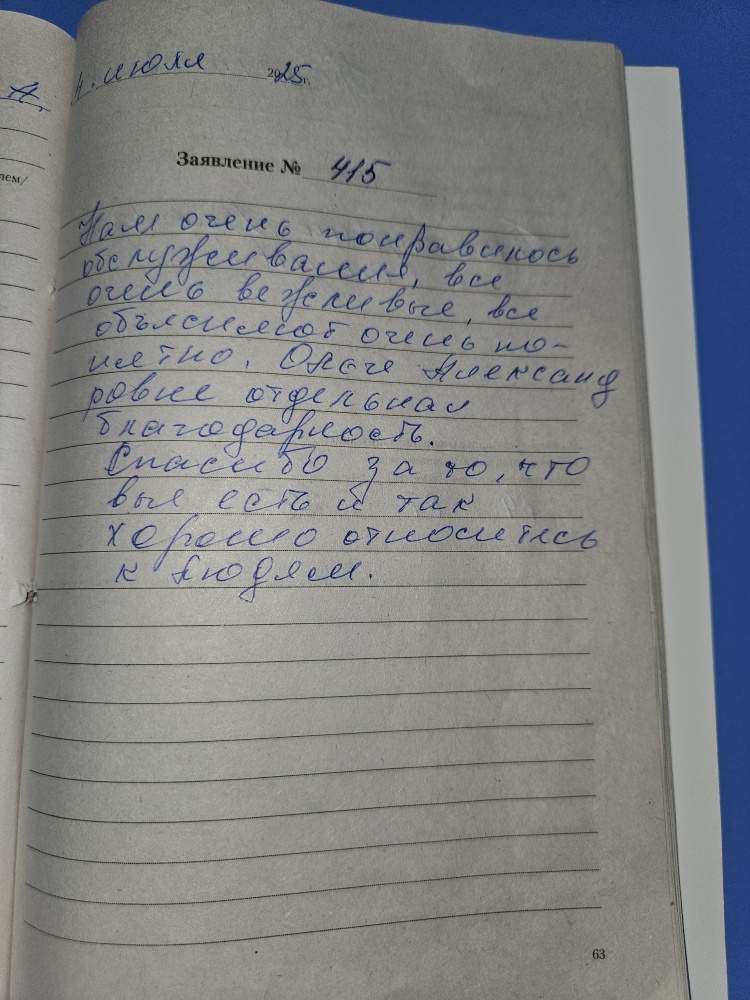 июля 2025г.
А.
лем/
Заявление № 415
Нам очень понравилось
обслуживание, все
очень вежливые, все
объясняют очень по-
нятно. Ольге Александ
ровне отдельная
благодарность.
Спасибо за то, что
вы есть и так
хорошо относитесь
к людям.
63